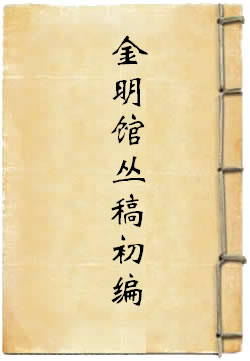 金明馆丛稿初编